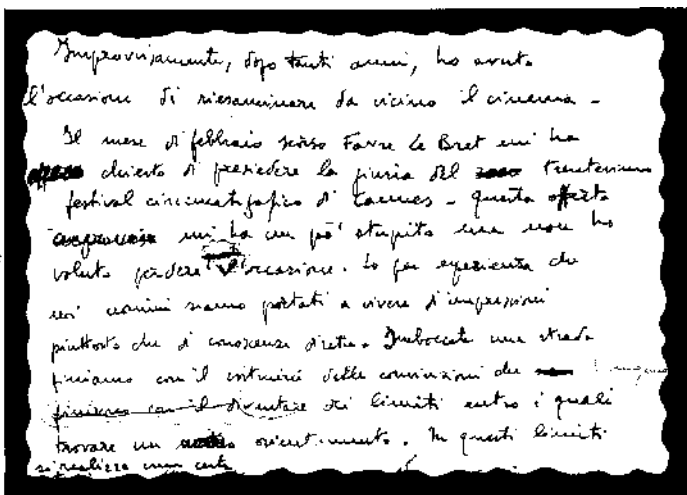 Improvvisamente, dopo tanti anni, ho avuto
l'occasione di riesaminare da vicino il cinema -
Il mese di febbraio scorso Favre Le Bret mi ha
chiesto di presiedere la giuria del trentesimo
festival cinematografico di Cannes - questa offerta
mi ha un po' stupito ma non ho
voluto perdere l'occasione. Io per esperienza che
noi uomini siamo portati a vivere d'impressioni
piuttosto che di conoscenze dirette. Imboccata una strada
finiamo con il costruirci delle convinzioni che
finiamo con il diventare dei limiti entro i quali
trovare un orientamento. In questi limiti
si realizza una certa